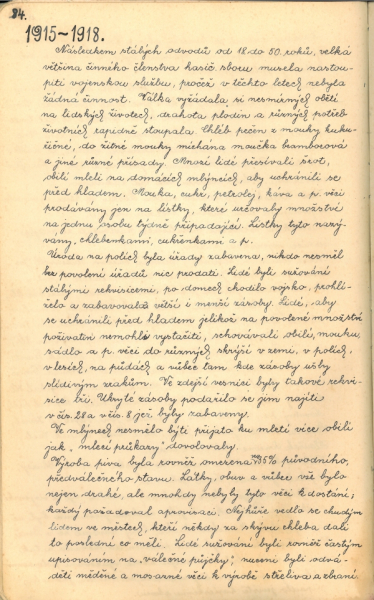 84.
1915–1918.
Následkem stálých odvodů od 18 do 50. roků, velká
většina činného členstva hasič. sboru musela nastou-
piti vojenskou službu, pročež v těchto letech nebyla
žádná činnost. Válka vyžádala si nesmírných obětí
na lidských životech, drahota plodin a různých potřeb
životních rapidně stoupala. Chléb pečen z mouky kuku-
řičné, do žitné mouky míchána moučka bramborová
a jiné různé přísady. Mnozí lidé přesívali šrot,
obilí mleli na domácích mlýncích, aby uchránili se
před hladem. Mouka, cukr, petrolej, káva a p. věci
prodávány jen na lístky, které určovaly množství
na jednu osobu týdně připadající. Lístky tyto nazý-
vány, chlebenkami, cukřenkami a p.
Úroda na polích byla úřady zabavena, nikdo nesměl
bez povolení úřadů nic prodati. Lidé byli sužováni
stálými rekvisicemi, po domech chodilo vojsko, prohlí-
želo a zabavovalo větší i menší zásoby. Lidé, aby
se uchránili před hladem jelikož na povolené množství
poživatin nemohli vystačiti, schovávali obilí, mouku,
sádlo a p. věci do různých skrýší v zemi, v polích,
v lesích, na půdách a vůbec tam kde zásoby ušly
slídivým zrakům. Ve zdejší vesnici byly takové rekvi-
sice tři. Ukryté zásoby podařilo se jim najíti
v čís. 28 a v čís. 8 jež byly zabaveny.
Ve mlýnech nesmělo býti přijato ku mletí více obilí
jak „mlecí průkazy" dovolovaly.
Výroba piva byla rovněž omezena 95% původního,
předválečného stavu. Látky, obuv a vůbec vše bylo
nejen drahé, ale mnohdy nebyly tyto věci k dostání;
každý požadoval aprovisaci. Nejhůře vedlo se chudým
lidem ve městech, kteří někdy za skývu chleba dali
to poslední co měli. Lidé sužováni byli rovněž častým
upisováním na „válečné půjčky", nuceni byli odvá-
děti měděné a mosazné věci k výrobě střeliva a zbraní.